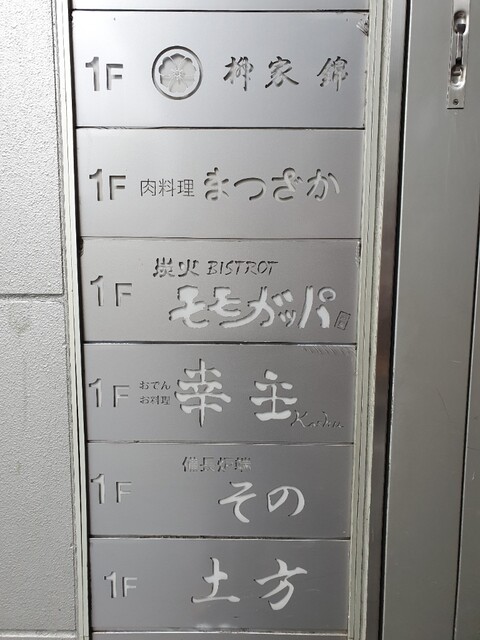 1F 柳家 錦
1F 肉料理 まつざか
炭火 BISTROT
1F モモガッパ
おでん
お料理
1F 幸主
備長炉端
1F その
1F 土方